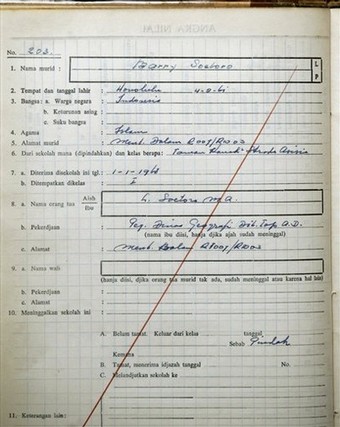 ANGKA NILAI
No. 203.
1. Nama murid : Barry Soetoro L P
2. Tempat dan tanggal lahir : Honolulu 4-8-61
3. Bangsa : a. Warga negara : Indonesia
b. Keturunan asing :
c. Suku bangsa :
4. Agama : Islam
5. Alamat murid : Ment. Dalam R007/R003
6. Dari sekolah mana (dipindahkan) dan kelas berapa : Taman Kanak² Strada Asisia
7. a. Diterima disekolah ini tgl. : 1-1-1968
b. Ditempatkan dikelas : I
8. a. Nama orang tua Ajah ibu : L. Soetoro M.A.
b. Pekerdjaan : Peg. Dinas Geografi Dit. Top. A.D.
(nama ibu diisi, hanja djika ajah sudah meninggal)
c. Alamat : Ment. Dalam R007/R003
9. a. Nama wali :
(hanja diisi, djika orang tua murid tak ada, sudah meninggal atau karena hal lain)
b. Pekerdjaan :
c. Alamat :
10. Meninggalkan sekolah ini :
A. Belum tamat. Keluar dari kelas tanggal
Sebab Pindah
Kemana
B. Tamat, menerima idjazah tanggal No.
C. Melandjutkan sekolah ke
11. Keterangan lain :